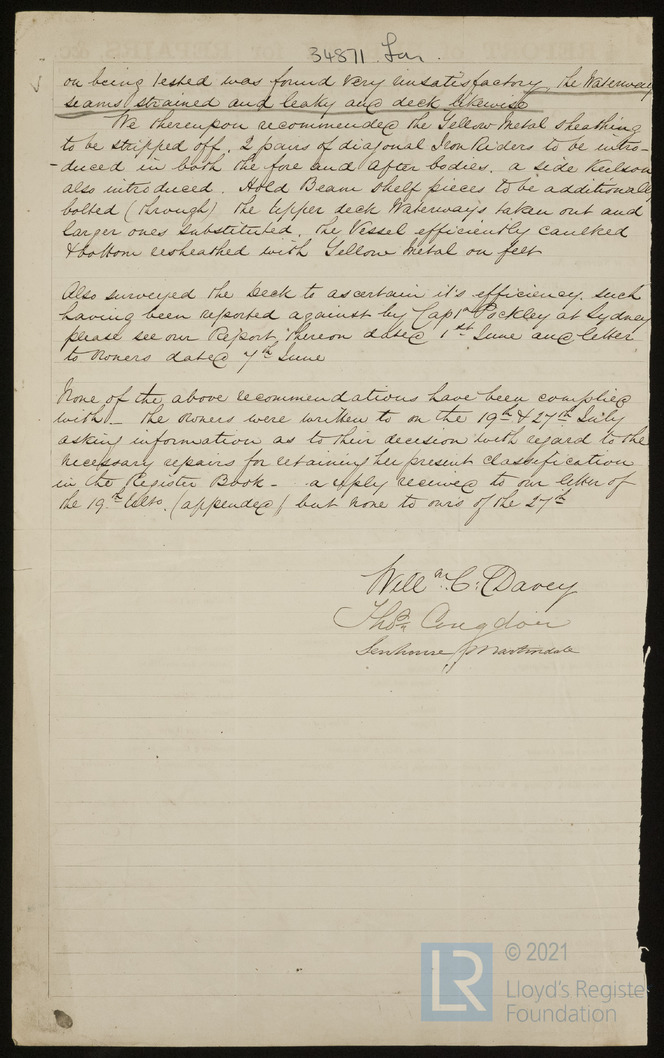 34871 Lon.
on being tested was found very unsatisfactory, the Waterway
seams strained and leaky and deck likewise
We thereupon recommended the Yellow Metal sheathing
to be stripped off. 2 pairs of diagonal Iron Riders to be intro-
-duced in both the fore and after bodies. a side Keelson
also introduced. Hold Beam shelf pieces to be additionally
bolted (through) the Upper deck Waterways taken out and
larger ones substituted. the Vessel efficiently caulked
& bottom resheathed with Yellow Metal on felt
Also surveyed the Deck to ascertain it's efficiency, such
having been reported against by Capt Pockley at Sydney
please see our Report thereon dated 1st June and letter
to Owners dated 7th June
None of the above recommendations have been complied
with - the owners were written to on the 19th & 27th July
asking information as to their decision with regard to the
necessary repairs for retaining her present classification
in the Register Book - a reply received to our letter of
the 19th Ulto. (appended) but none to ours of the 27th
Willm C. Davey
Thos Congdon
Senhouse Martindale
LR
© 2021
Lloyd's Register
Foundation